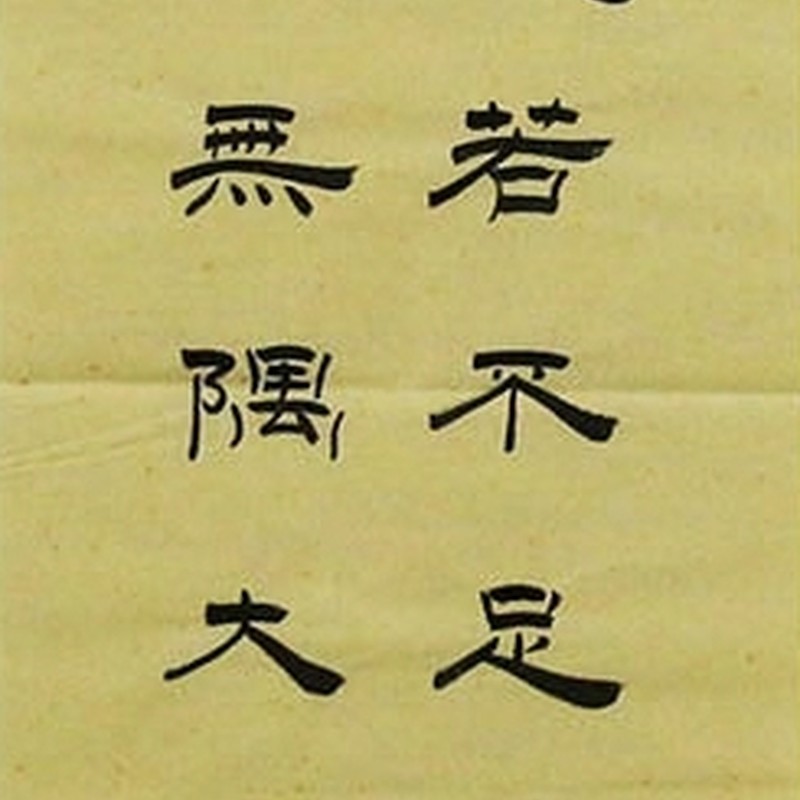 若不足
無隅大